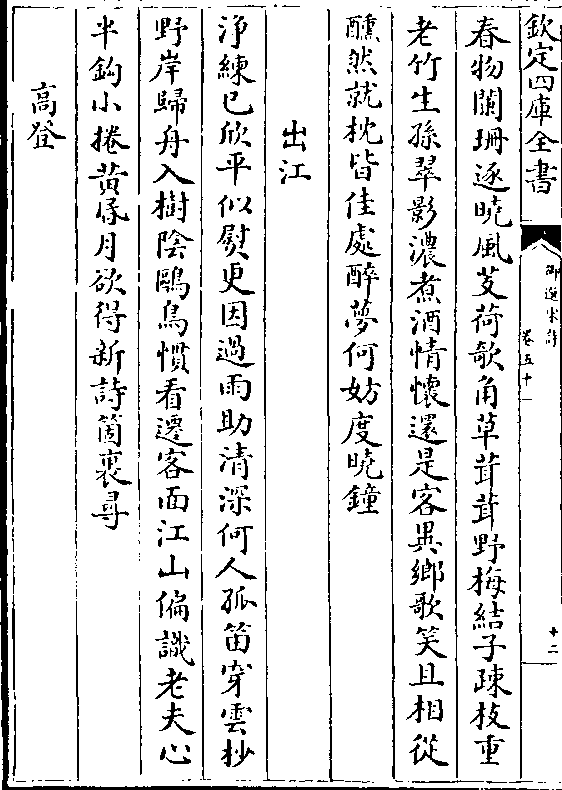 欽定四庫全書
御選宋詩
卷五十
十二
春物闌珊逐曉風芰荷欹角草茸茸野梅結子疎枝重
老竹生孫翠影濃煮酒情懷還是客異鄉歌笑且相從
醺然就枕皆佳處醉夢何妨度曉鐘
出江
浄練已欣平似熨更因過雨助清深何人孤笛穿雲杪
野岸歸舟入樹陰鷗鳥慣看遷客面江山偏識老夫心
半鈎小捲黄昏月欲得新詩箇裏尋
高登